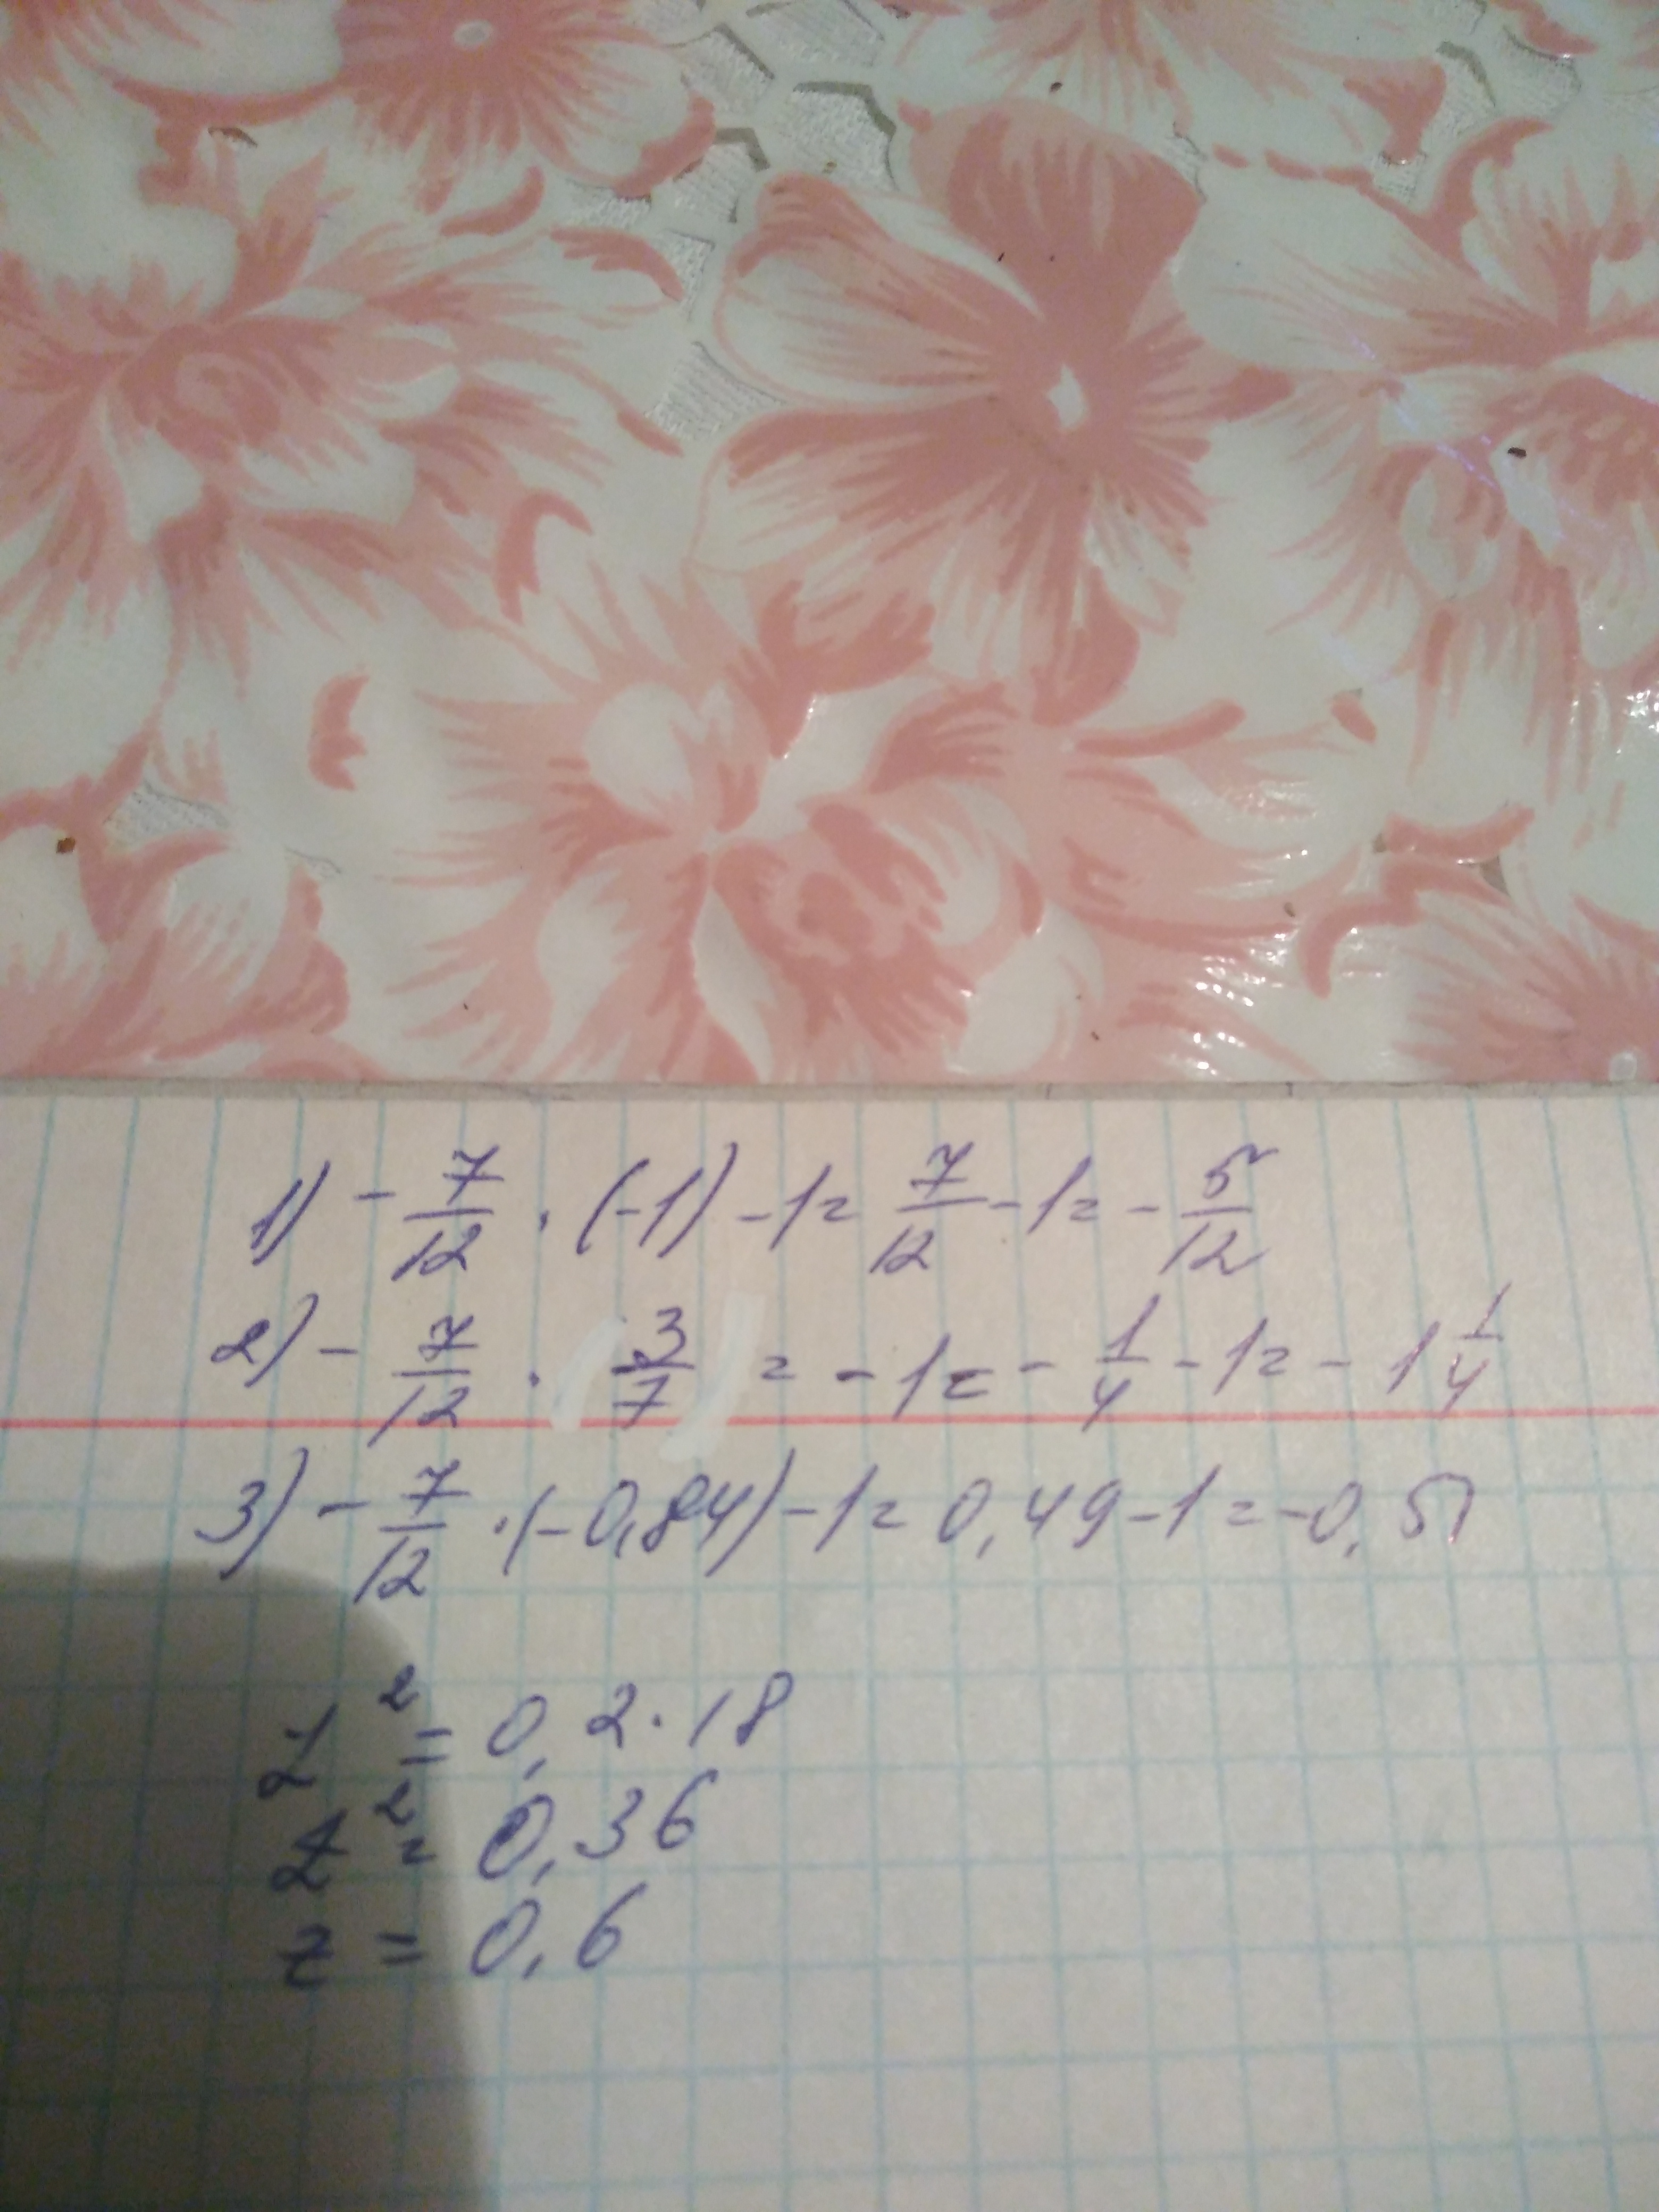 1) - 7/12 · (-1) - 1 = 7/12 - 1 = - 5/12
2) - 7/12 · 3/7 = - 1 = - 1/4 - 1 = - 1 1/4
3) - 7/12 · (-0,84) - 1 = 0,49 - 1 = -0,51
z² = 0,2 · 18
z² = 0,36
z = 0,6